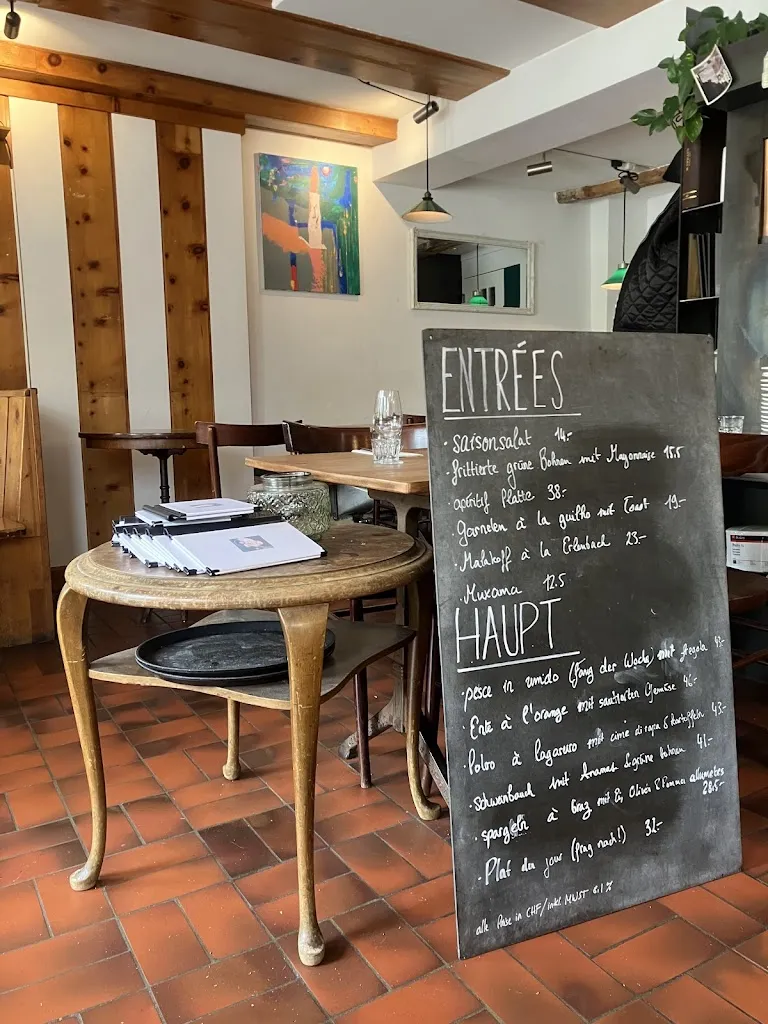 ENTRÉES
· Saisonsalat 14.-
· frittierte grüne Bohnen mit Mayonnaise 15.5
· apéritif Platte 38.-
· Garnelen à la guilho mit Toast 19.-
· Malakoff à la Erlenbach 23.-
· Muxama 12.5
HAUPT
· pesce in umido (Fang der Woche) mit fregola 43.-
· Ente à l'orange mit sautierten Gemüse 46.-
· Polvo à lagareiro mit cime di rapa & Kartoffeln 43.-
· Schweinbauch mit Ananas & grüne bohnen 41.-
· spargeln à Graz mit Ei, Oliven & Pommes allumettes 28.5.-
· Plat du jour (frag nach!) 32.-
alle Preise in CHF/inkl. MWST 8.1%